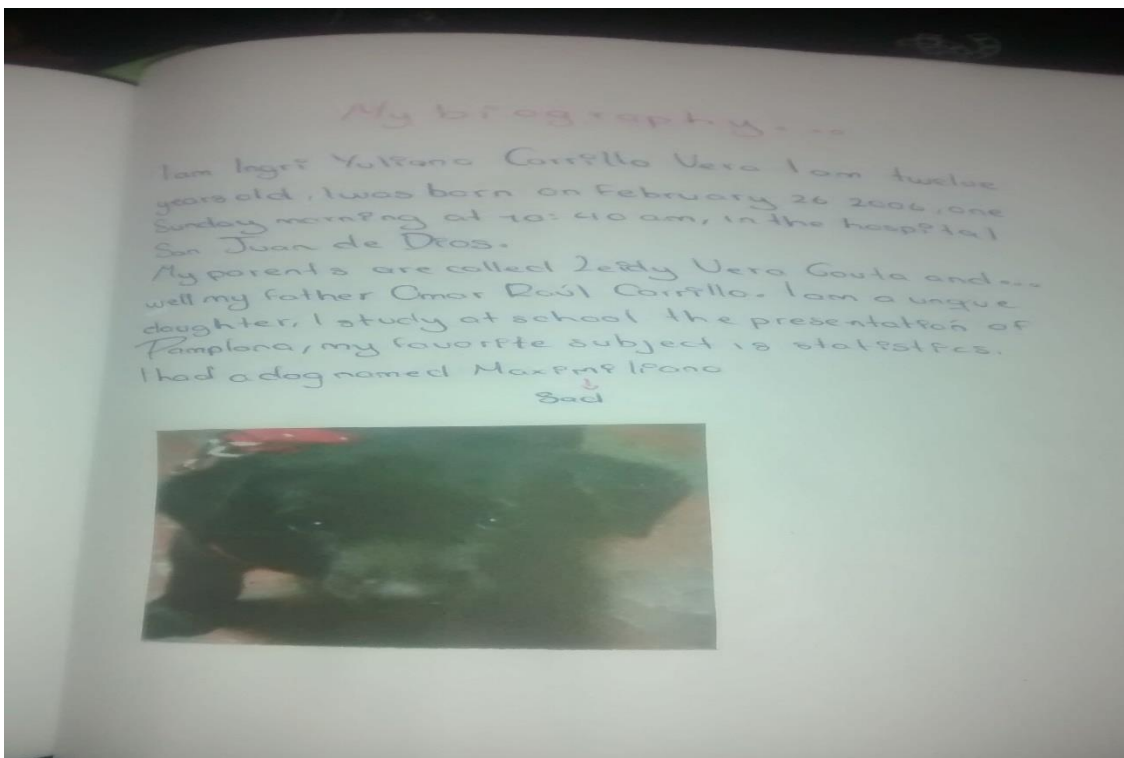 My biography...
I am Ingri Yuliana Carrillo Vera I am twelve
years old, I was born on February 26 2006, one
Sunday morning at 10:40 am, in the hospital
San Juan de Dios.
My parents are called Leidy Vera and...
well my father Omar Raúl Carrillo. I am a unque
daughter, I study at school the presentation of
Pamplona, my favorite subject is statistics.
I had a dog named Maximiliano
↓
Sad